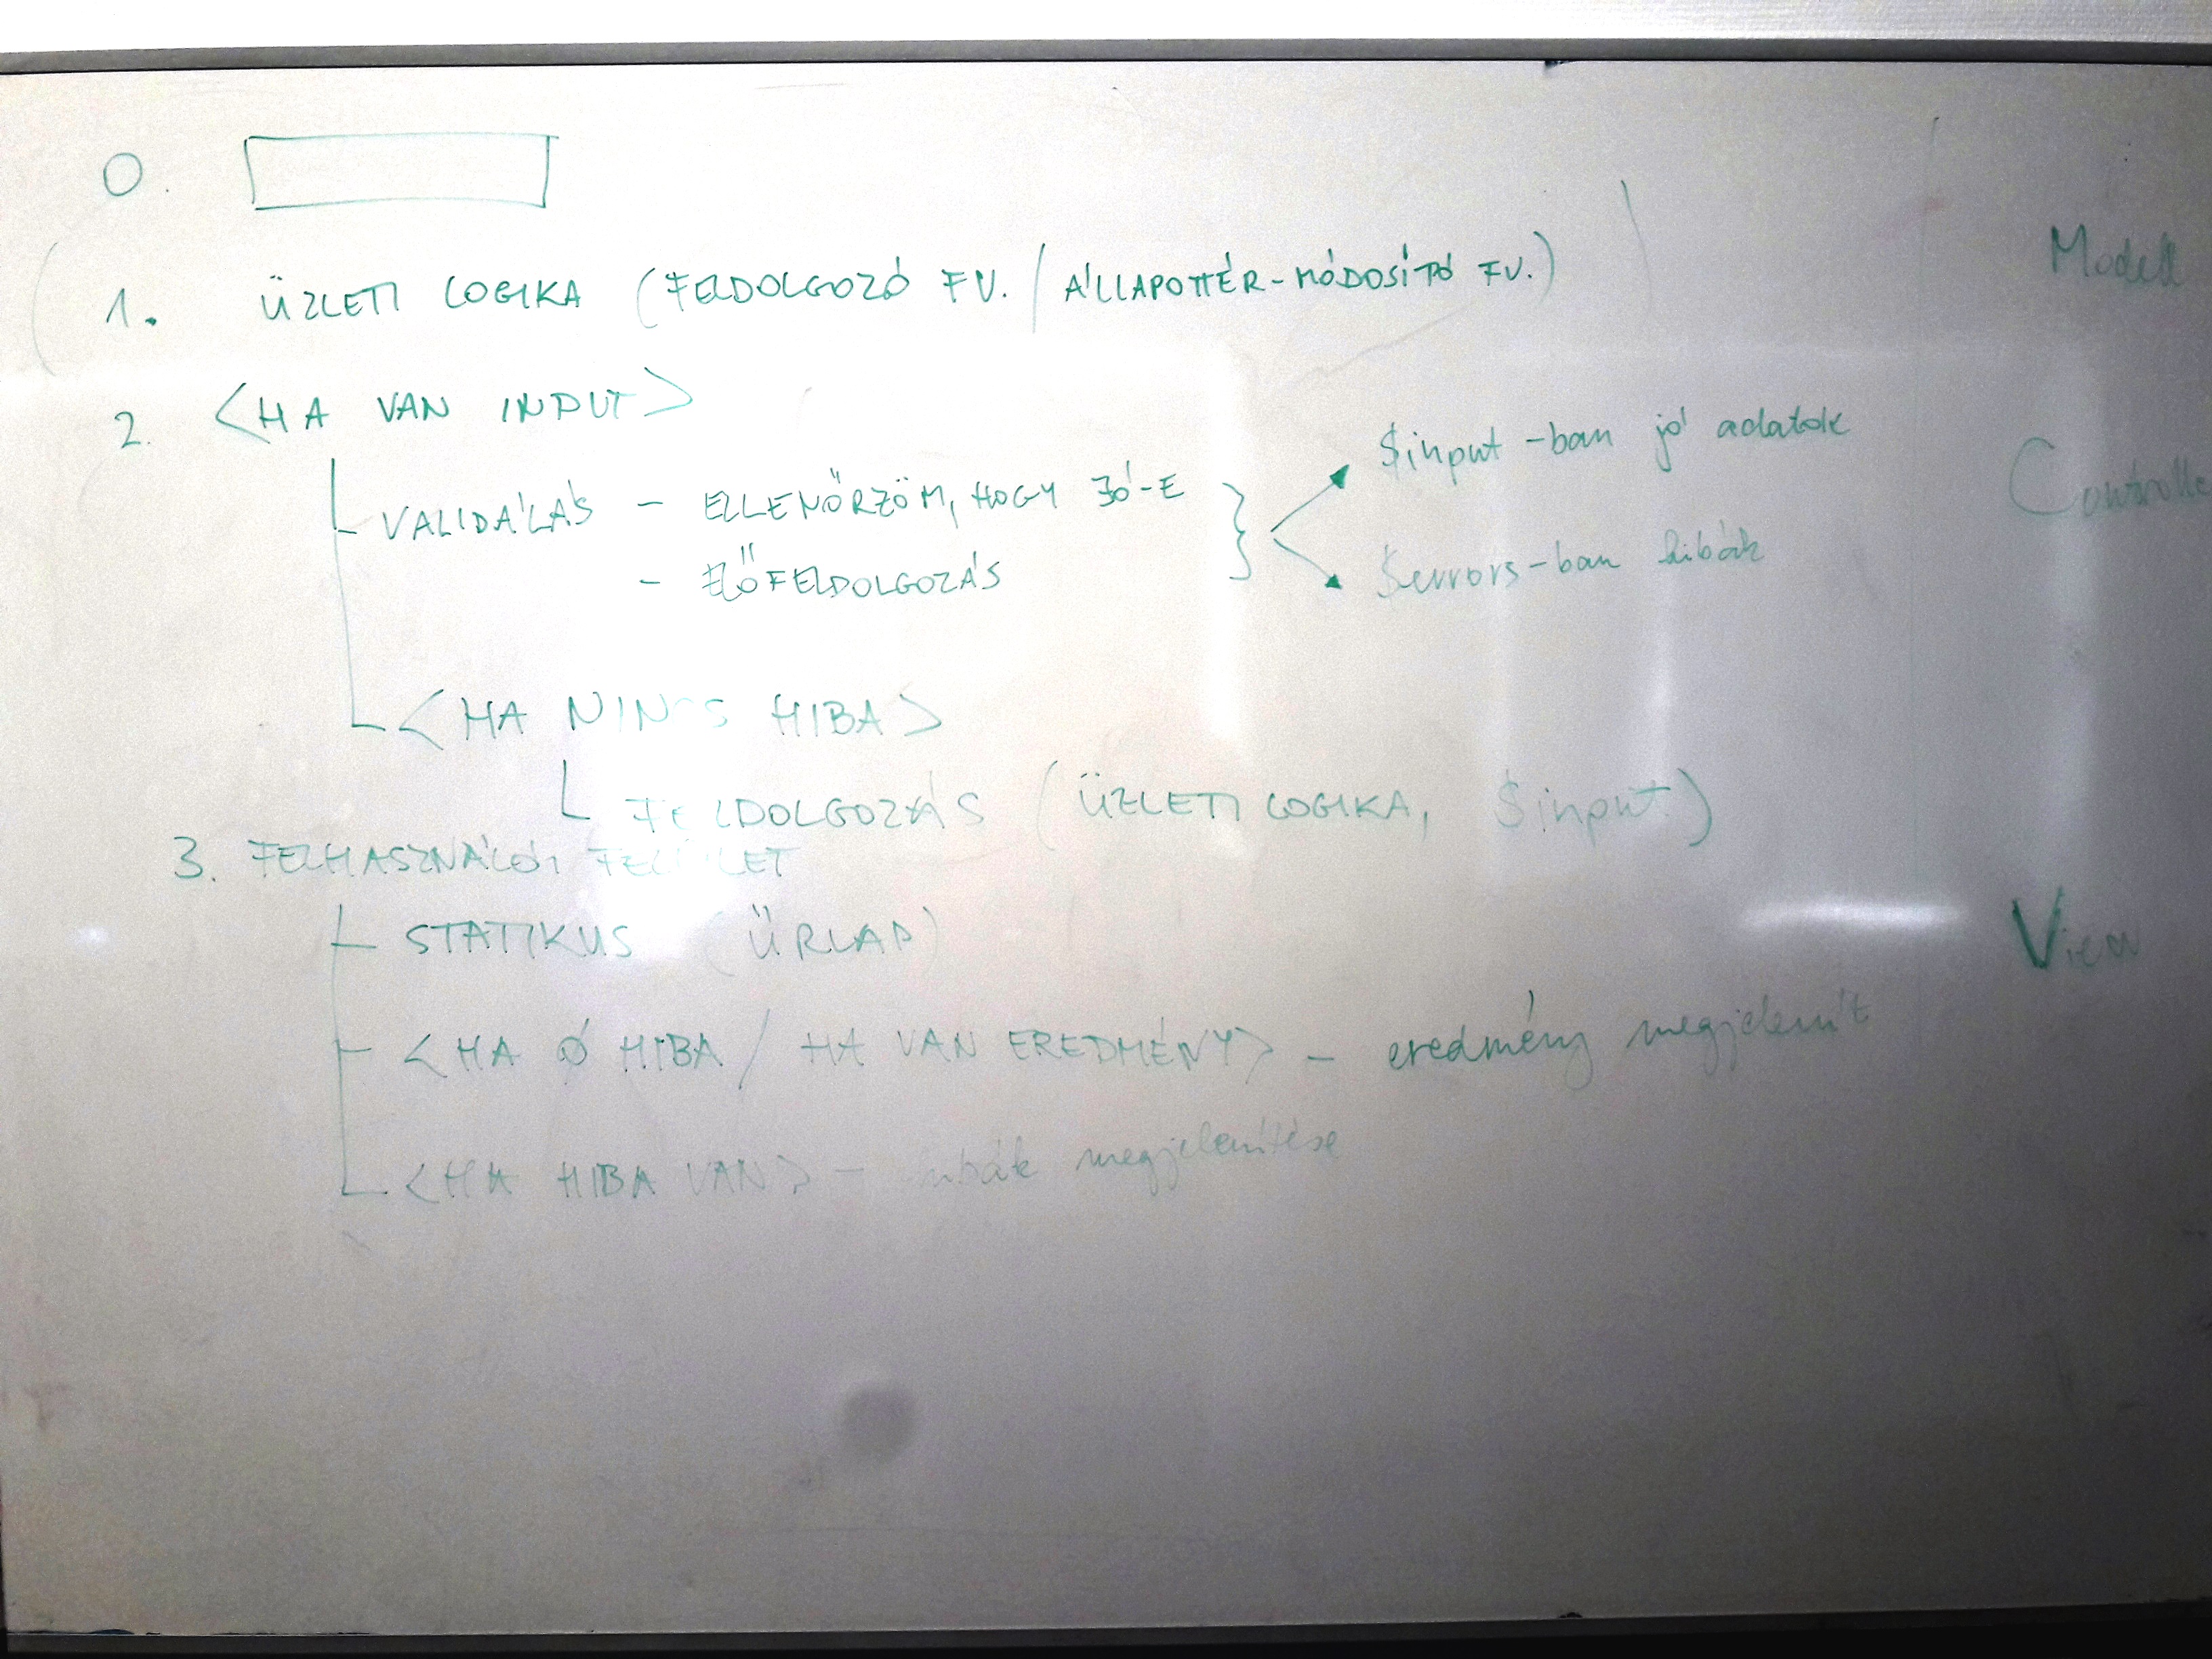 0.
1. ÜZLETI LOGIKA (FELDOLGOZÓ FV. / ÁLLAPOTTÉR-MÓDOSÍTÓ FV.)
Modell
2. <HA VAN INPUT>
VALIDÁLÁS - ELLENŐRZÖM, HOGY JÓ-E
- ELŐFELDOLGOZÁS
$input-ban jó adatok
$errors-ban hibák
Controlle
<HA NINCS HIBA>
FELDOLGOZÁS (ÜZLETI LOGIKA, $input)
3. FELHASZNÁLÓI FELÜLET
View
STATIKUS (ŰRLAP)
<HA Ø HIBA / HA VAN EREDMÉNY> - eredmény megjelenít
<HA HIBA VAN> - hibák megjelenítése